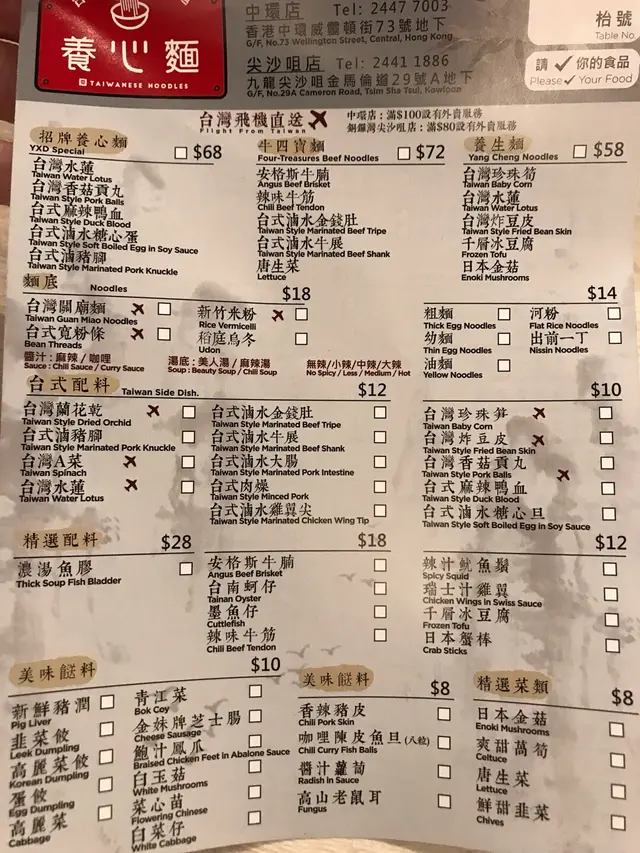 養心麵
TAIWANESE NOODLES
中環店 Tel: 2447 7003
香港中環威靈頓街73號地下
G/F, No.73 Wellington Street, Central, Hong Kong
尖沙咀店 Tel: 2441 1886
九龍尖沙咀金馬倫道29號A地下
G/F, No.29A Cameron Road, Tsim Sha Tsui, Kowloon
枱號
Table No.
請✓你的食品
Please✓Your Food
台灣飛機直送
Flight From Taiwan
中環店:滿$100設有外賣服務
銅鑼灣尖沙咀店:滿$80設有外賣服務
招牌養心麵 $68
YXD Special
台灣水蓮
Taiwan Water Lotus
台灣香菇貢丸
Taiwan Style Pork Balls
台式麻辣鴨血
Taiwan Style Duck Blood
台式滷水糖心蛋
Taiwan Style Soft Boiled Egg in Soy Sauce
台式滷豬腳
Taiwan Style Marinated Pork Knuckle
牛四寶麵 $72
Four-Treasures Beef Noodles
安格斯牛腩
Angus Beef Brisket
辣味牛筋
Chili Beef Tendon
台式滷水金錢肚
Taiwan Style Marinated Beef Tripe
台式滷水牛展
Taiwan Style Marinated Beef Shank
唐生菜
Lettuce
養生麵 $58
Yang Cheng Noodles
台灣珍珠筍
Taiwan Baby Corn
台灣水蓮
Taiwan Water Lotus
台灣炸豆皮
Taiwan Style Fried Bean Skin
千層冰豆腐
Frozen Tofu
日本金菇
Enoki Mushrooms
麵底 Noodles
$18
台灣關廟麵
Taiwan Guan Miao Noodles
台式寬粉條
Bean Threads
新竹米粉
Rice Vermicelli
稻庭烏冬
Udon
$14
粗麵
Thick Egg Noodles
幼麵
Thin Egg Noodles
油麵
Yellow Noodles
河粉
Flat Rice Noodles
出前一丁
Nissin Noodles
醬汁:麻辣/咖哩
Sauce : Chili Sauce / Curry Sauce
湯底:美人湯/麻辣湯
Soup : Beauty Soup / Chili Soup
無辣/小辣/中辣/大辣
No Spicy / Less / Medium / Hot
台式配料 Taiwan Side Dish.
$12
台灣蘭花乾
Taiwan Style Dried Orchid
台式滷豬腳
Taiwan Style Marinated Pork Knuckle
台灣A菜
Taiwan Spinach
台灣水蓮
Taiwan Water Lotus
台式滷水金錢肚
Taiwan Style Marinated Beef Tripe
台式滷水牛展
Taiwan Style Marinated Beef Shank
台式滷水大腸
Taiwan Style Marinated Pork Intestine
台式肉燥
Taiwan Style Minced Pork
台式滷水雞翼尖
Taiwan Style Marinated Chicken Wing Tip
$10
台灣珍珠笋
Taiwan Baby Corn
台灣炸豆皮
Taiwan Style Fried Bean Skin
台灣香菇貢丸
Taiwan Style Pork Balls
台式麻辣鴨血
Taiwan Style Duck Blood
台式滷水糖心旦
Taiwan Style Soft Boiled Egg in Soy Sauce
精選配料
$28
濃湯魚膠
Thick Soup Fish Bladder
$18
安格斯牛腩
Angus Beef Brisket
台南蚵仔
Tainan Oyster
墨魚仔
Cuttlefish
辣味牛筋
Chili Beef Tendon
$12
辣汁魷魚鬚
Spicy Squid
瑞士汁雞翼
Chicken Wings in Swiss Sauce
千層冰豆腐
Frozen Tofu
日本蟹棒
Crab Sticks
美味餸料
$10
新鮮豬潤
Pig Liver
韭菜餃
Leek Dumpling
高麗菜餃
Korean Dumpling
蛋餃
Egg Dumpling
高麗菜
Cabbage
青江菜
Bok Coy
金妹牌芝士腸
Cheese Sausage
鮑汁鳳爪
Braised Chicken Feet in Abalone Sauce
白玉菇
White Mushrooms
菜心苗
Flowering Chinese
白菜仔
White Cabbage
美味餸料
$8
香辣豬皮
Chili Pork Skin
咖哩陳皮魚旦(八粒)
Chili Curry Fish Balls
醬汁蘿蔔
Radish in Sauce
高山老鼠耳
Fungus
精選菜類
$8
日本金菇
Enoki Mushrooms
爽甜萵筍
Celtuce
唐生菜
Lettuce
鮮甜韭菜
Chives